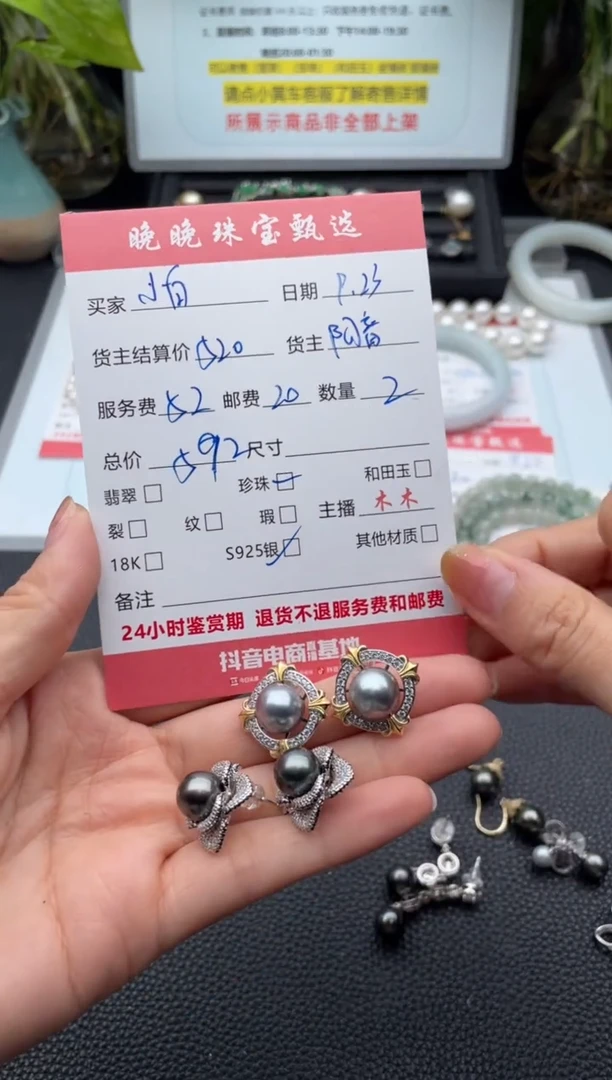 请点小黄车客服了解寄售详情
所展示商品非全部上架
晚晚珠宝甄选
买家 小白 日期 9.23
货主结算价 520 货主
服务费 52 邮费 20 数量 2
总价 592 尺寸
翡翠□ 珍珠□ 和田玉□
裂□ 纹□ 瑕□ 主播 木木
18K□ S925银□ 其他材质□
备注
24小时鉴赏期 退货不退服务费和邮费
抖音电商 基地